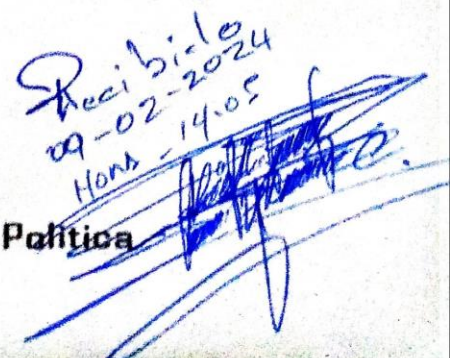 Recibido
09-02-2024
Hora - 14.05
Politica